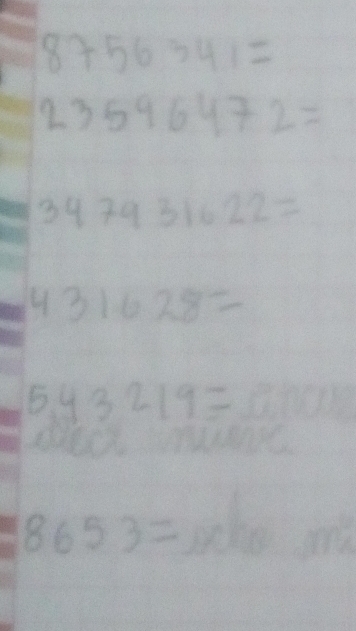 8756341=
23596472=
3479316 22=
431628=
5,43219=
8653= ocho mi